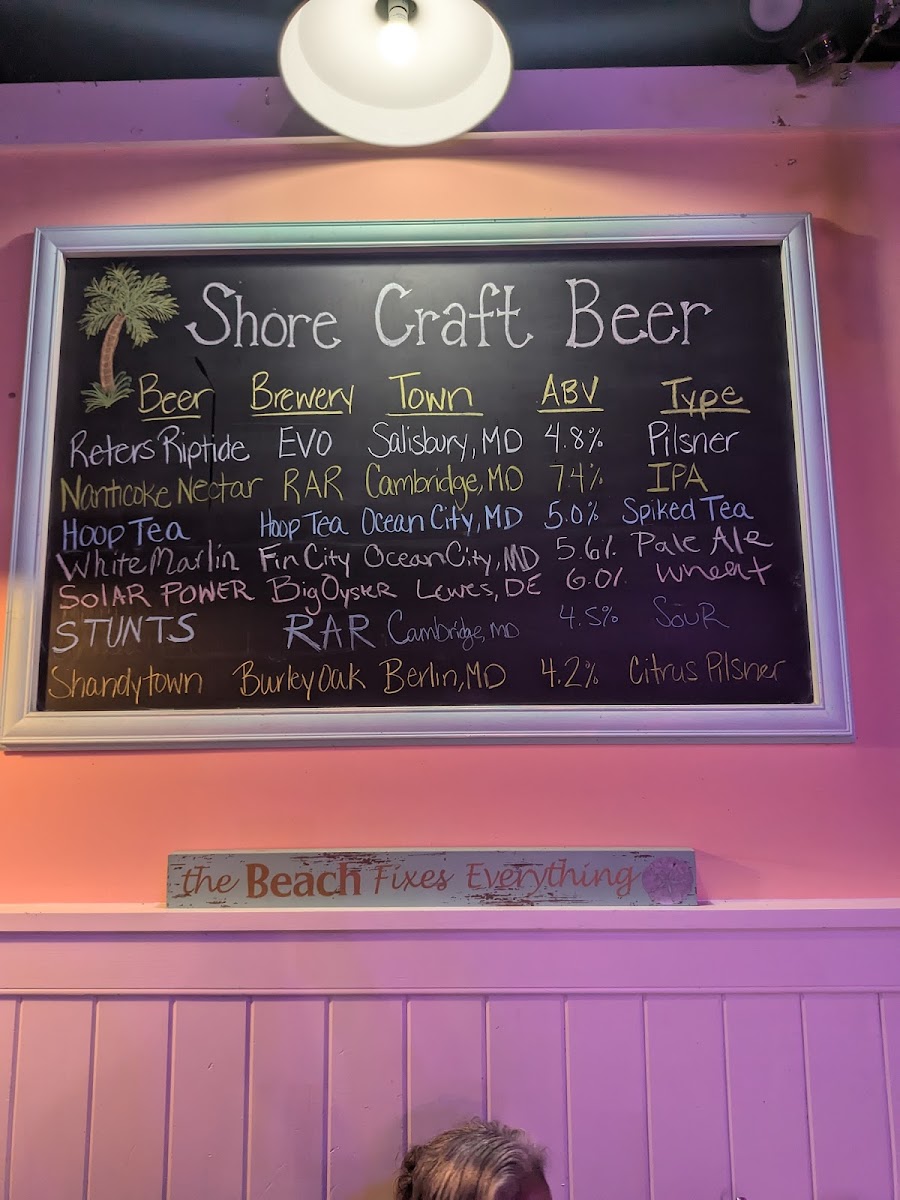 Shore Craft Beer
Beer Brewery Town ABV Type
Reters Riptide EVO Salisbury, MD 4.8% Pilsner
Nanticoke Nectar RAR Cambridge, MD 7.4% IPA
Hoop Tea Hoop Tea Ocean City, MD 5.0% Spiked Tea
White Marlin Fin City Ocean City, MD 5.6% Pale Ale
SOLAR POWER Big Oyster Lewes, DE 6.0% Wheat
STUNTS RAR Cambridge, MD 4.5% SOUR
Shandytown Burley Oak Berlin, MD 4.2% Citrus Pilsner
the Beach Fixes Everything